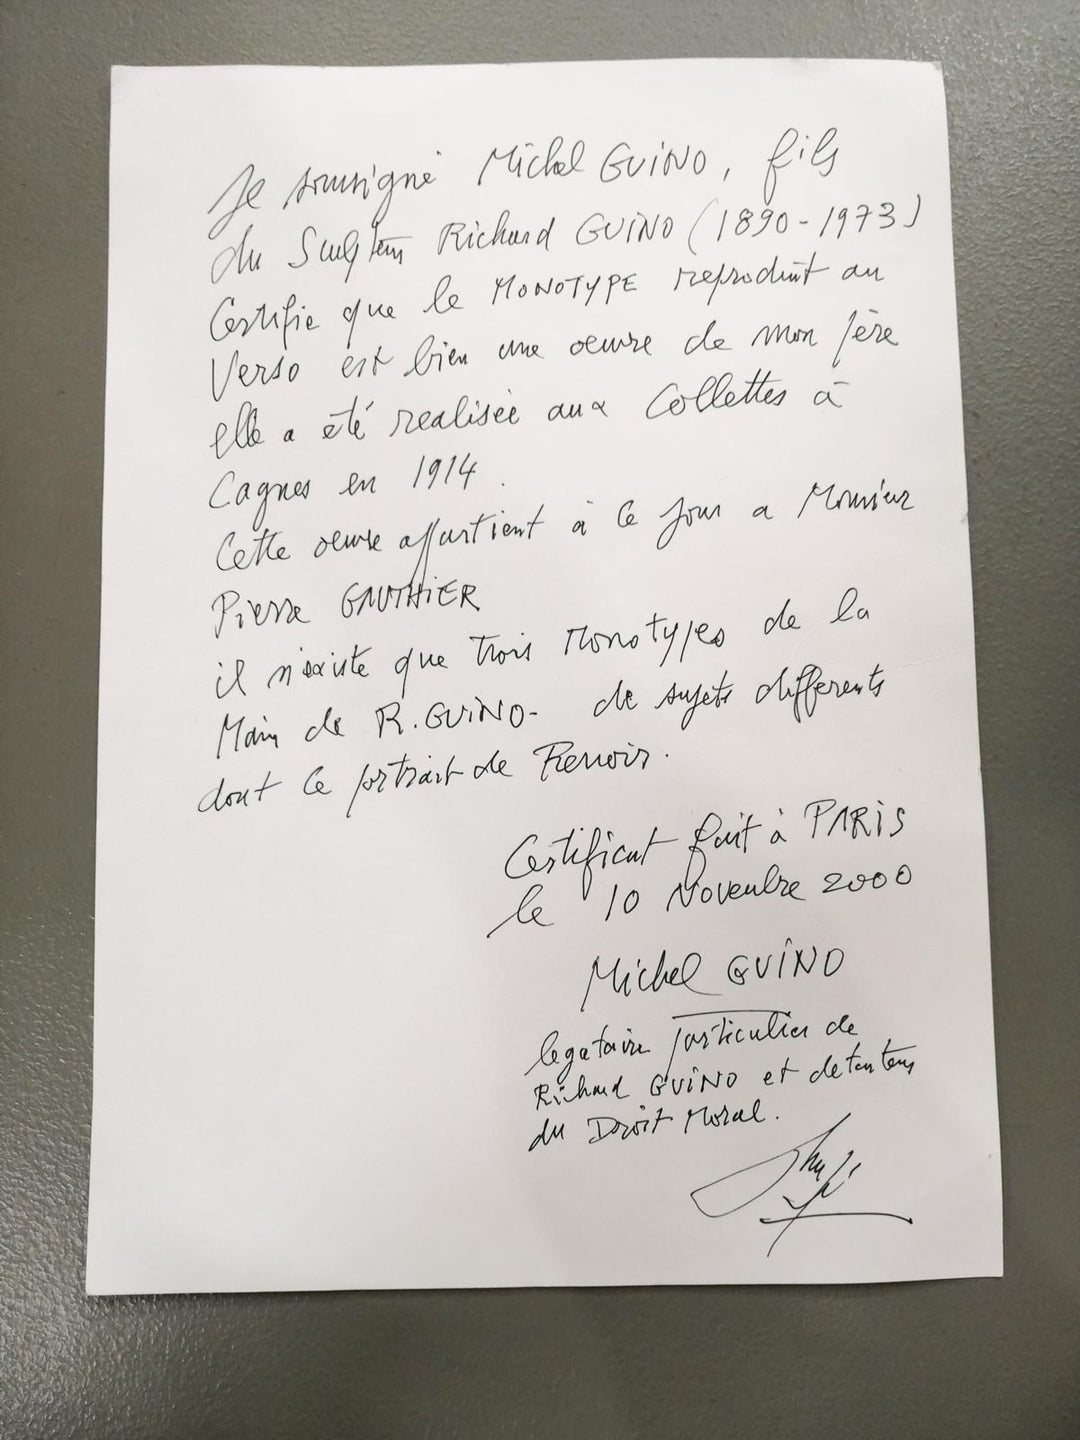 Je soussigné Michel GUiNO, fils
du Sculpteur Richard GUiNO (1890-1973)
Certifie que le MONOTYPE reproduit au
Verso est bien une oeuvre de mon père
elle a été realisée aux Collettes à
Cagnes en 1914.
Cette oeuvre appartient à ce jour a Monsieur
Pierre GAUTHiER
il n'existe que trois Monotypes de la
Main de R. GUiNO- de sujets differents
dont ce portrait de Renoir.
Certificat fait à PARiS
le 10 Novembre 2000
Michel GUiNO
legataire particulier de
Richard GUiNO et detenteur
du Droit Moral.